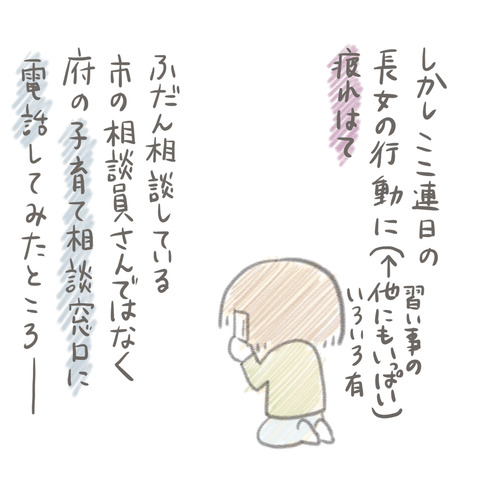 しかしここ連日の
長女の行動に(↑他にもいっぱい)
習い事の
いろいろ有
疲れはて
ふだん相談している
市の相談員さんではなく
府の子育て相談窓口に
電話してみたところ――